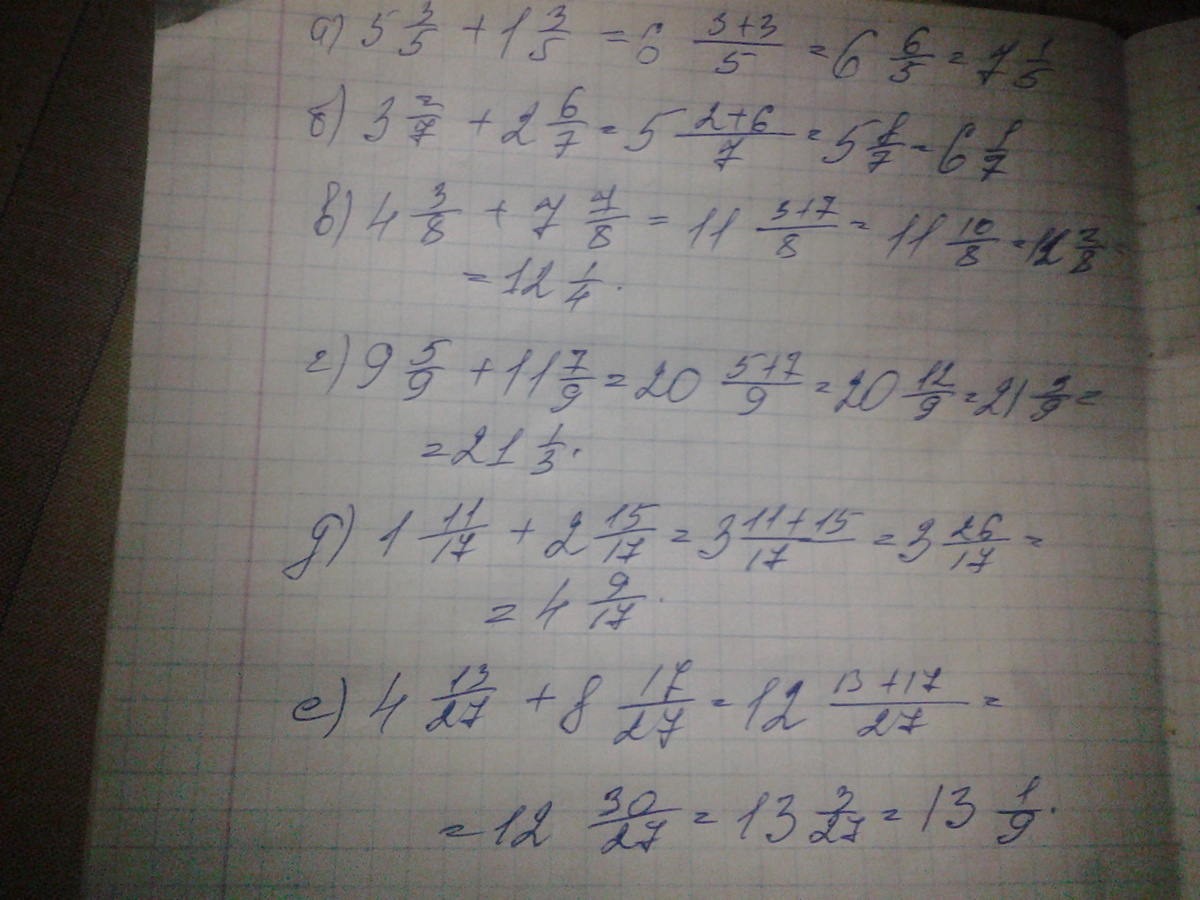 а) 5 3/5 + 1 3/5 = 6 (3+3)/5 = 6 6/5 = 7 1/5
б) 3 2/7 + 2 6/7 = 5 (2+6)/7 = 5 8/7 = 6 1/7
в) 4 3/8 + 7 7/8 = 11 (3+7)/8 = 11 10/8 = 12 2/8 =
= 12 1/4.
г) 9 5/9 + 11 7/9 = 20 (5+7)/9 = 20 12/9 = 21 3/9 =
= 21 1/3.
д) 1 11/17 + 2 15/17 = 3 (11+15)/17 = 3 26/17 =
= 4 9/17.
е) 4 13/27 + 8 17/27 = 12 (13+17)/27 =
= 12 30/27 = 13 3/27 = 13 1/9.